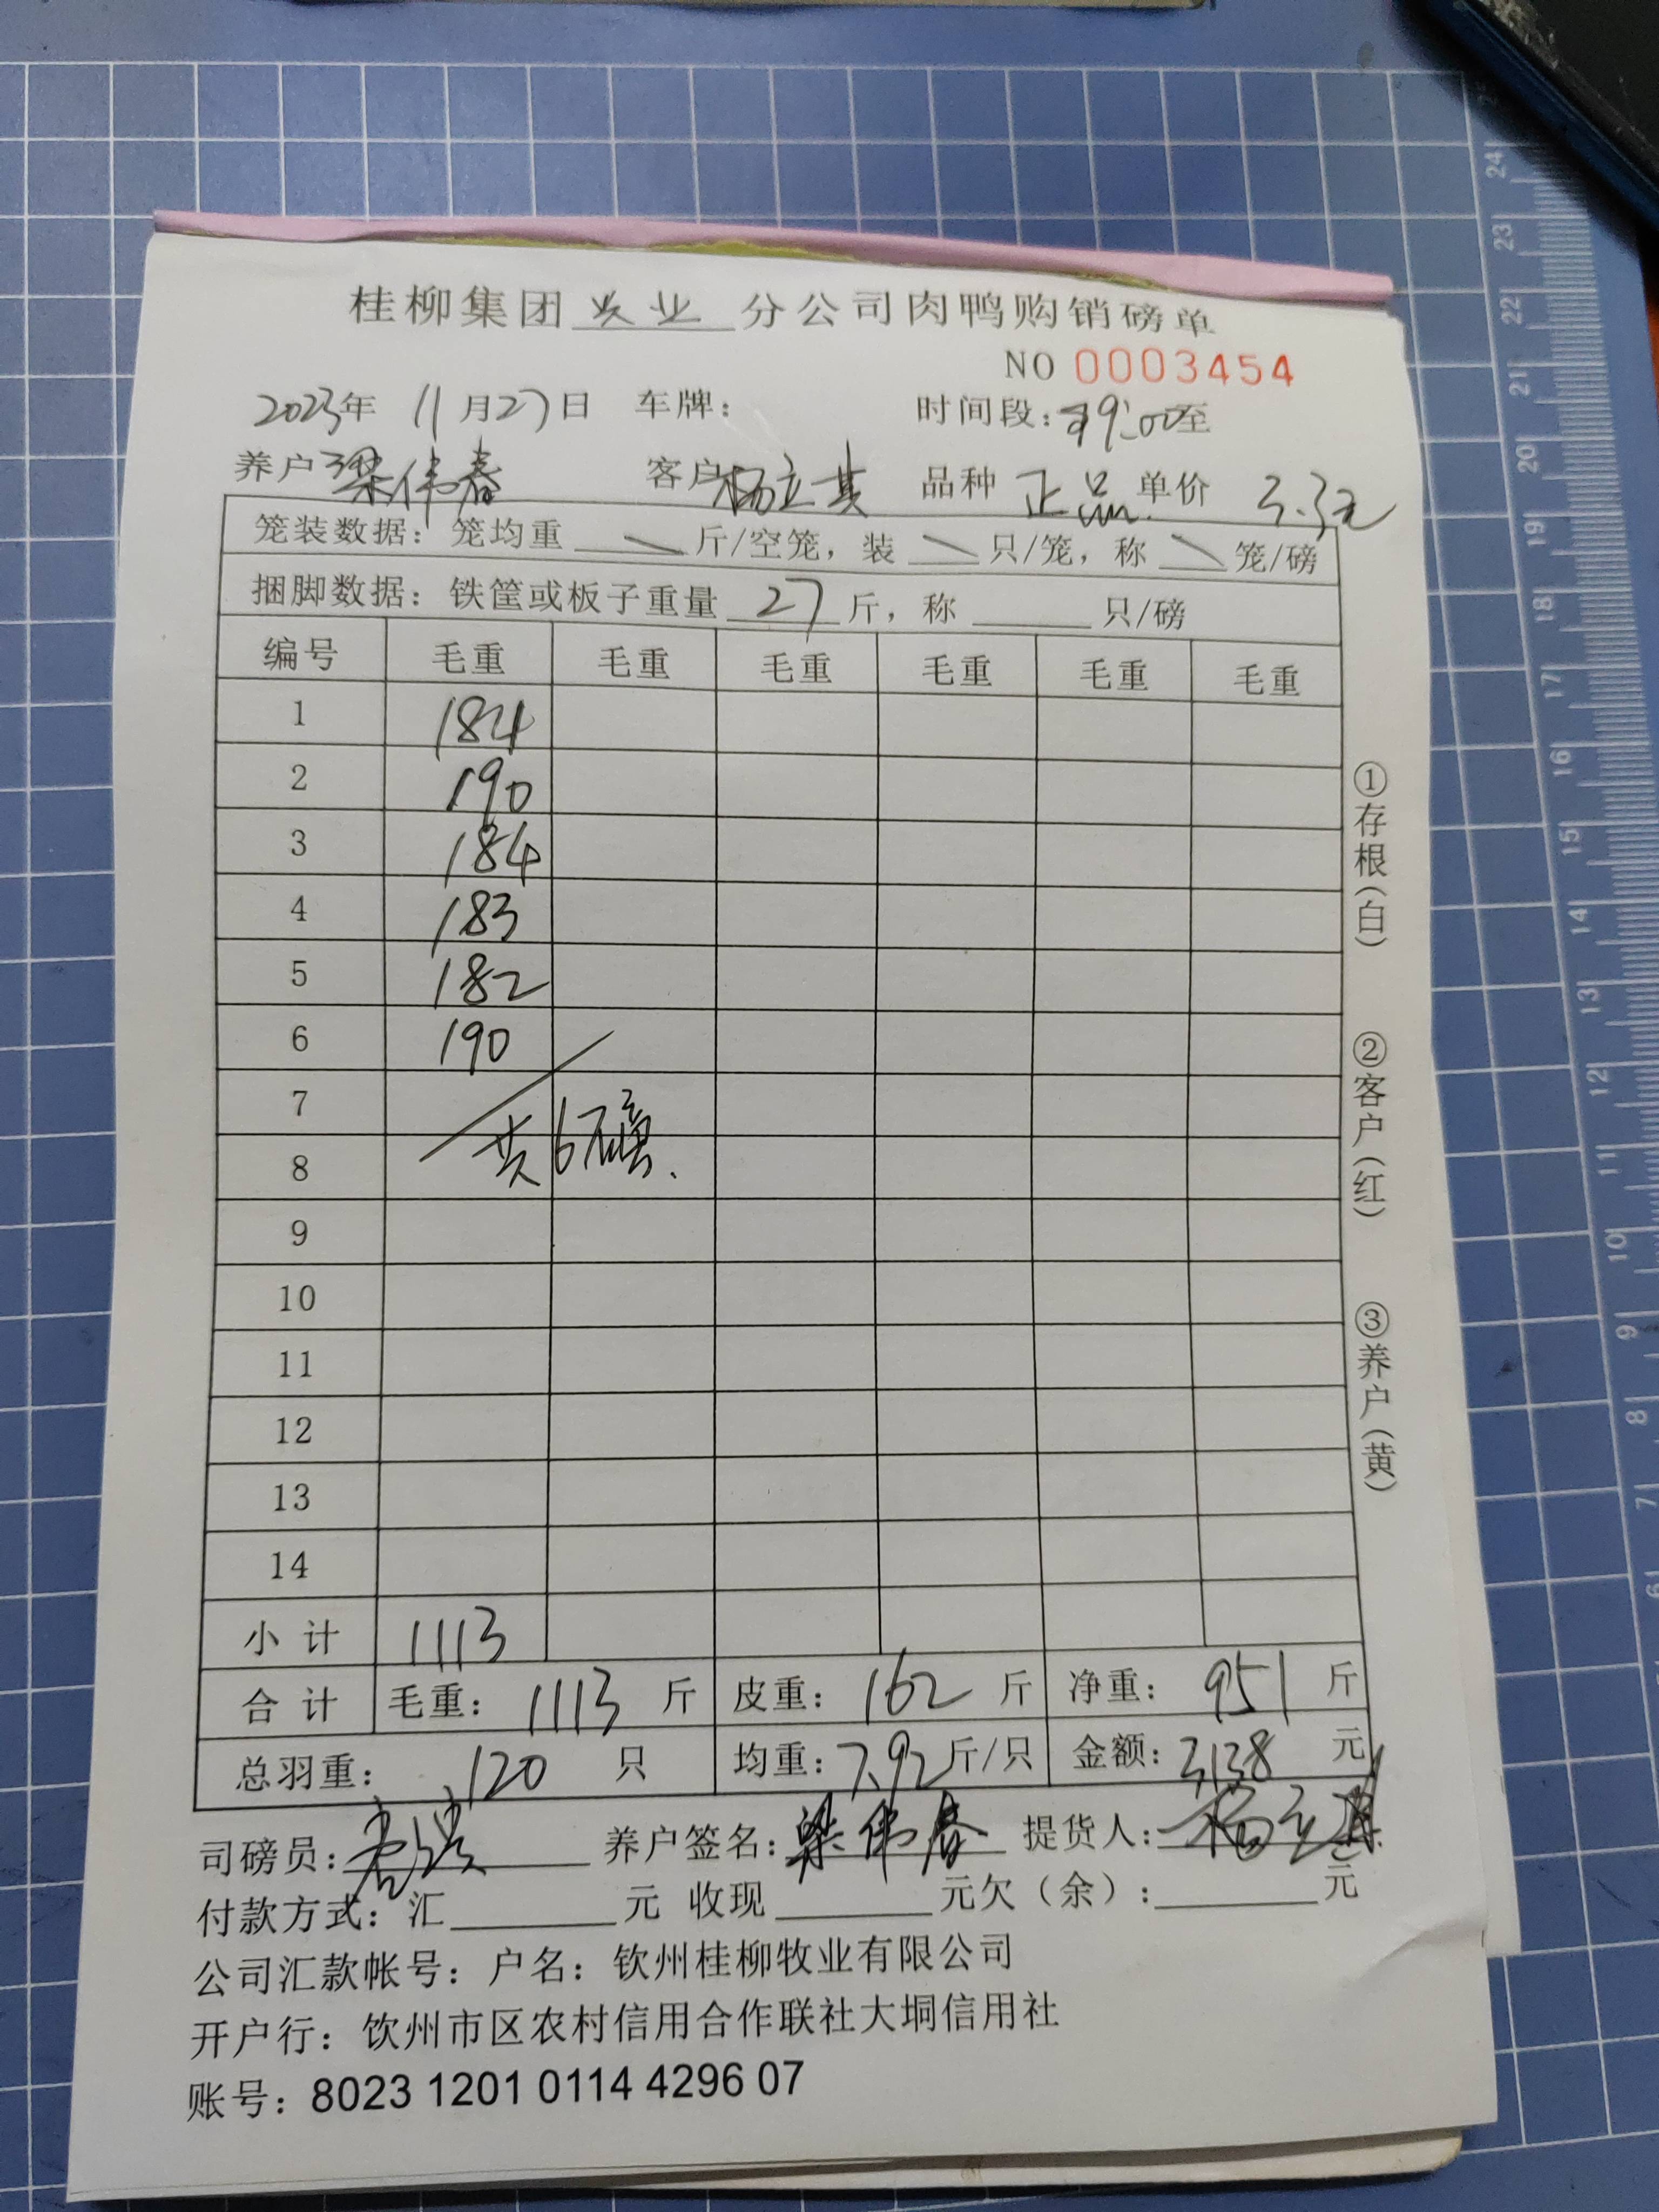 桂柳集团 农业 分公司肉鸭购销磅单
NO 0003454
2023年 11月27日 车牌: 时间段: 19:00至
养户 梁伟春 客户 杨立其 品种 正品 单价 3.3元
笼装数据: 笼均重 \ 斤/空笼, 装 \ 只/笼, 称 \ 笼/磅
捆脚数据: 铁筐或板子重量 27 斤, 称 只/磅
编号 毛重 毛重 毛重 毛重 毛重 毛重
1 184
2 190
3 184
4 183
5 182
6 190
7
共6磅.
8
9
10
11
12
13
14
小计 1113
合计 毛重: 1113 斤 皮重: 162 斤 净重: 951 斤
总羽重: 120 只 均重: 7.92 斤/只 金额: 3138 元
司磅员: 养户签名: 梁伟春 提货人: 杨立其
付款方式: 汇 元 收现 元欠(余): 元
公司汇款帐号: 户名: 钦州桂柳牧业有限公司
开户行: 钦州市区农村信用合作联社大垌信用社
账号: 8023 1201 0114 4296 07
①存根(白)
②客户(红)
③养户(黄)
24
23
22
21
20
19
18
17
16
15
14
13
12
11
10
9
8
7
6